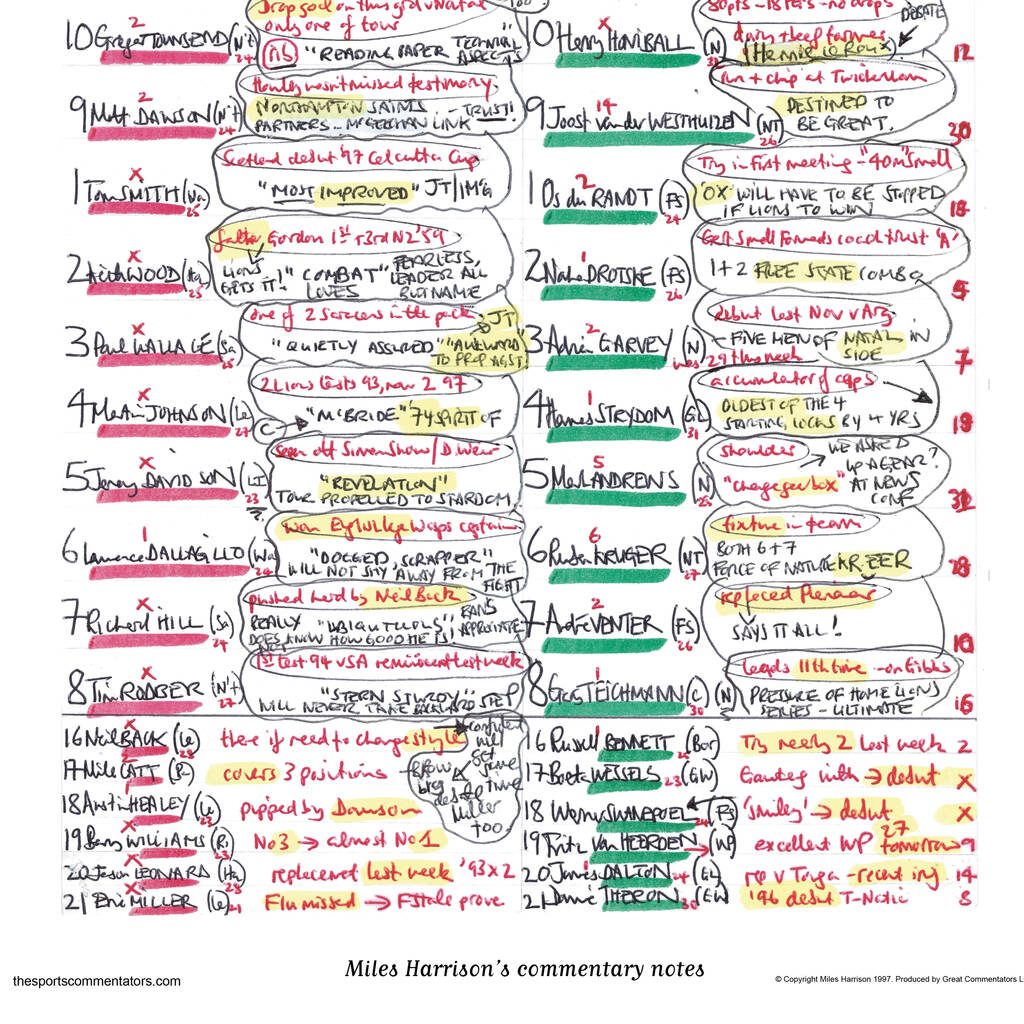 Drop goal on this grd v Natal
only one of tour
10 Gregor TOWNSEND (N't) 24
2
NS "READING PAPER TECHNICAL ASPECTS
9 Matt DAWSON (N't) 24
2
NORTHAMPTON SAINTS - TRUST!
PARTNERS - McGEECHAN LINK
1 Tom SMITH (Wa) 25
x
Scotland debut '97 Calcutta Cup
"MOST IMPROVED" JT/IMcG
2 Keith WOOD (Ha) 25
x
father Gordon 1st + 3rd NZ '59
LIONS GETS IT! "COMBAT" LOVES
FEARLESS, LEADER ALL BUT NAME
3 Paul WALLACE (Sa) 25
x
one of 2 Saracens in the pack
JT
"QUIETLY ASSURED" "AWKWARD" TO PROP AGST.
4 Martin JOHNSON (Le) 27
x
2 Lions tests 93, now 2 97
C → "McBRIDE" '74 SPIRIT OF
5 Jeremy DAVIDSON (LI) 23
x
Seen off Simon Shaw / D. Weir
"REVELATION"
TOUR PROPELLED TO STARDOM
6 Lawrence DALLAGLIO (Wa) 24
1
won Eng Lge Wasps captain
"DOGGED, SCRAPPER"
WILL NOT SHY AWAY FROM THE FIGHT
7 Richard HILL (Sa) 24
x
pushed hard by Neil Back
REALLY "UBIQUITOUS" FANS APPRECIATE
DOES NOT KNOW HOW GOOD HE IS!
8 Tim RODBER (N't) 27
x
1st test 94 v SA reminiscent last week
"STERN STURDY"
WILL NEVER TAKE BACKWARD STEP
16 Neil BACK (Le) 28
x
there if need to change style
17 Mike CATT (B)
x
covers 3 positions
18 Austin HEALEY (Le) 23
pipped by Dawson
19 Barry WILLIAMS (Ri) 23
x
No3 → almost No1
20 Jason LEONARD (Ha) 28
x
replacement last week '93 x 2
21 Eric MILLER (Le) 21
x
Flu missed → F State prove
confident will get game time
Miller too
10 Henry HONIBALL (N)
x
12
80pts - 18 PG's - no drops
DEBATE
Hennie le Roux
9 Joost van der WESTHUIZEN (NT) 26
14
30
run + chip at Twickenham
DESTINED TO BE GREAT.
1 Os du RANDT (FS) 24
2
18
Try in first meeting - "40m" small
'OX' WILL HAVE TO BE STOPPED
IF LIONS TO WIN
2 Naka DROTSKE (FS) 26
1
5
1+2 FREE STATE COMBO
3 Adrian GARVEY (N)
2
7
debut last Nov v Arg
- FIVE MEN OF NATAL IN SIDE
was 29 this week
4 Hannes STRYDOM (GL) 31
1
19
accumulator of caps
OLDEST OF THE 4
STARTING LOCKS BY 4 YRS
5 Mark ANDREWS (N) 25
5
32
shoulder
"change gearbox"
WE ASKED UP A GEAR? AT NEWS CONF
6 Ruben KRUGER (NT) 27
6
28
fixture in team
BOTH 6+7
FORCE OF NATURE KR.EER
7 Andre VENTER (FS) 26
2
10
replaced Pienaar
SAYS IT ALL!
8 Gary TEICHMANN (C) (N) 30
1
16
Leads 11th time - on Gibbs
PRESSURE OF HOME LIONS
SERIES - ULTIMATE
16 Russell BENNETT (Bor) 25
Try nearly 2 last week 2
17 Boeta WESSELS 23 (GW)
Gauteng with → debut x
18 Werner SWANEPOEL (FS)
'Smiley' → debut x
19 Fritz VAN HEERDEN (WP)
excellent WP 27 tomorrow 9
20 James DALTON 24 (GL)
rep v Tonga - recent inj 14
21 Dawie THERON 30 (GW)
'96 debut 8
Miles Harrison's commentary notes
thesportscommentators.com
© Copyright Miles Harrison 1997. Produced by Great Commentators L